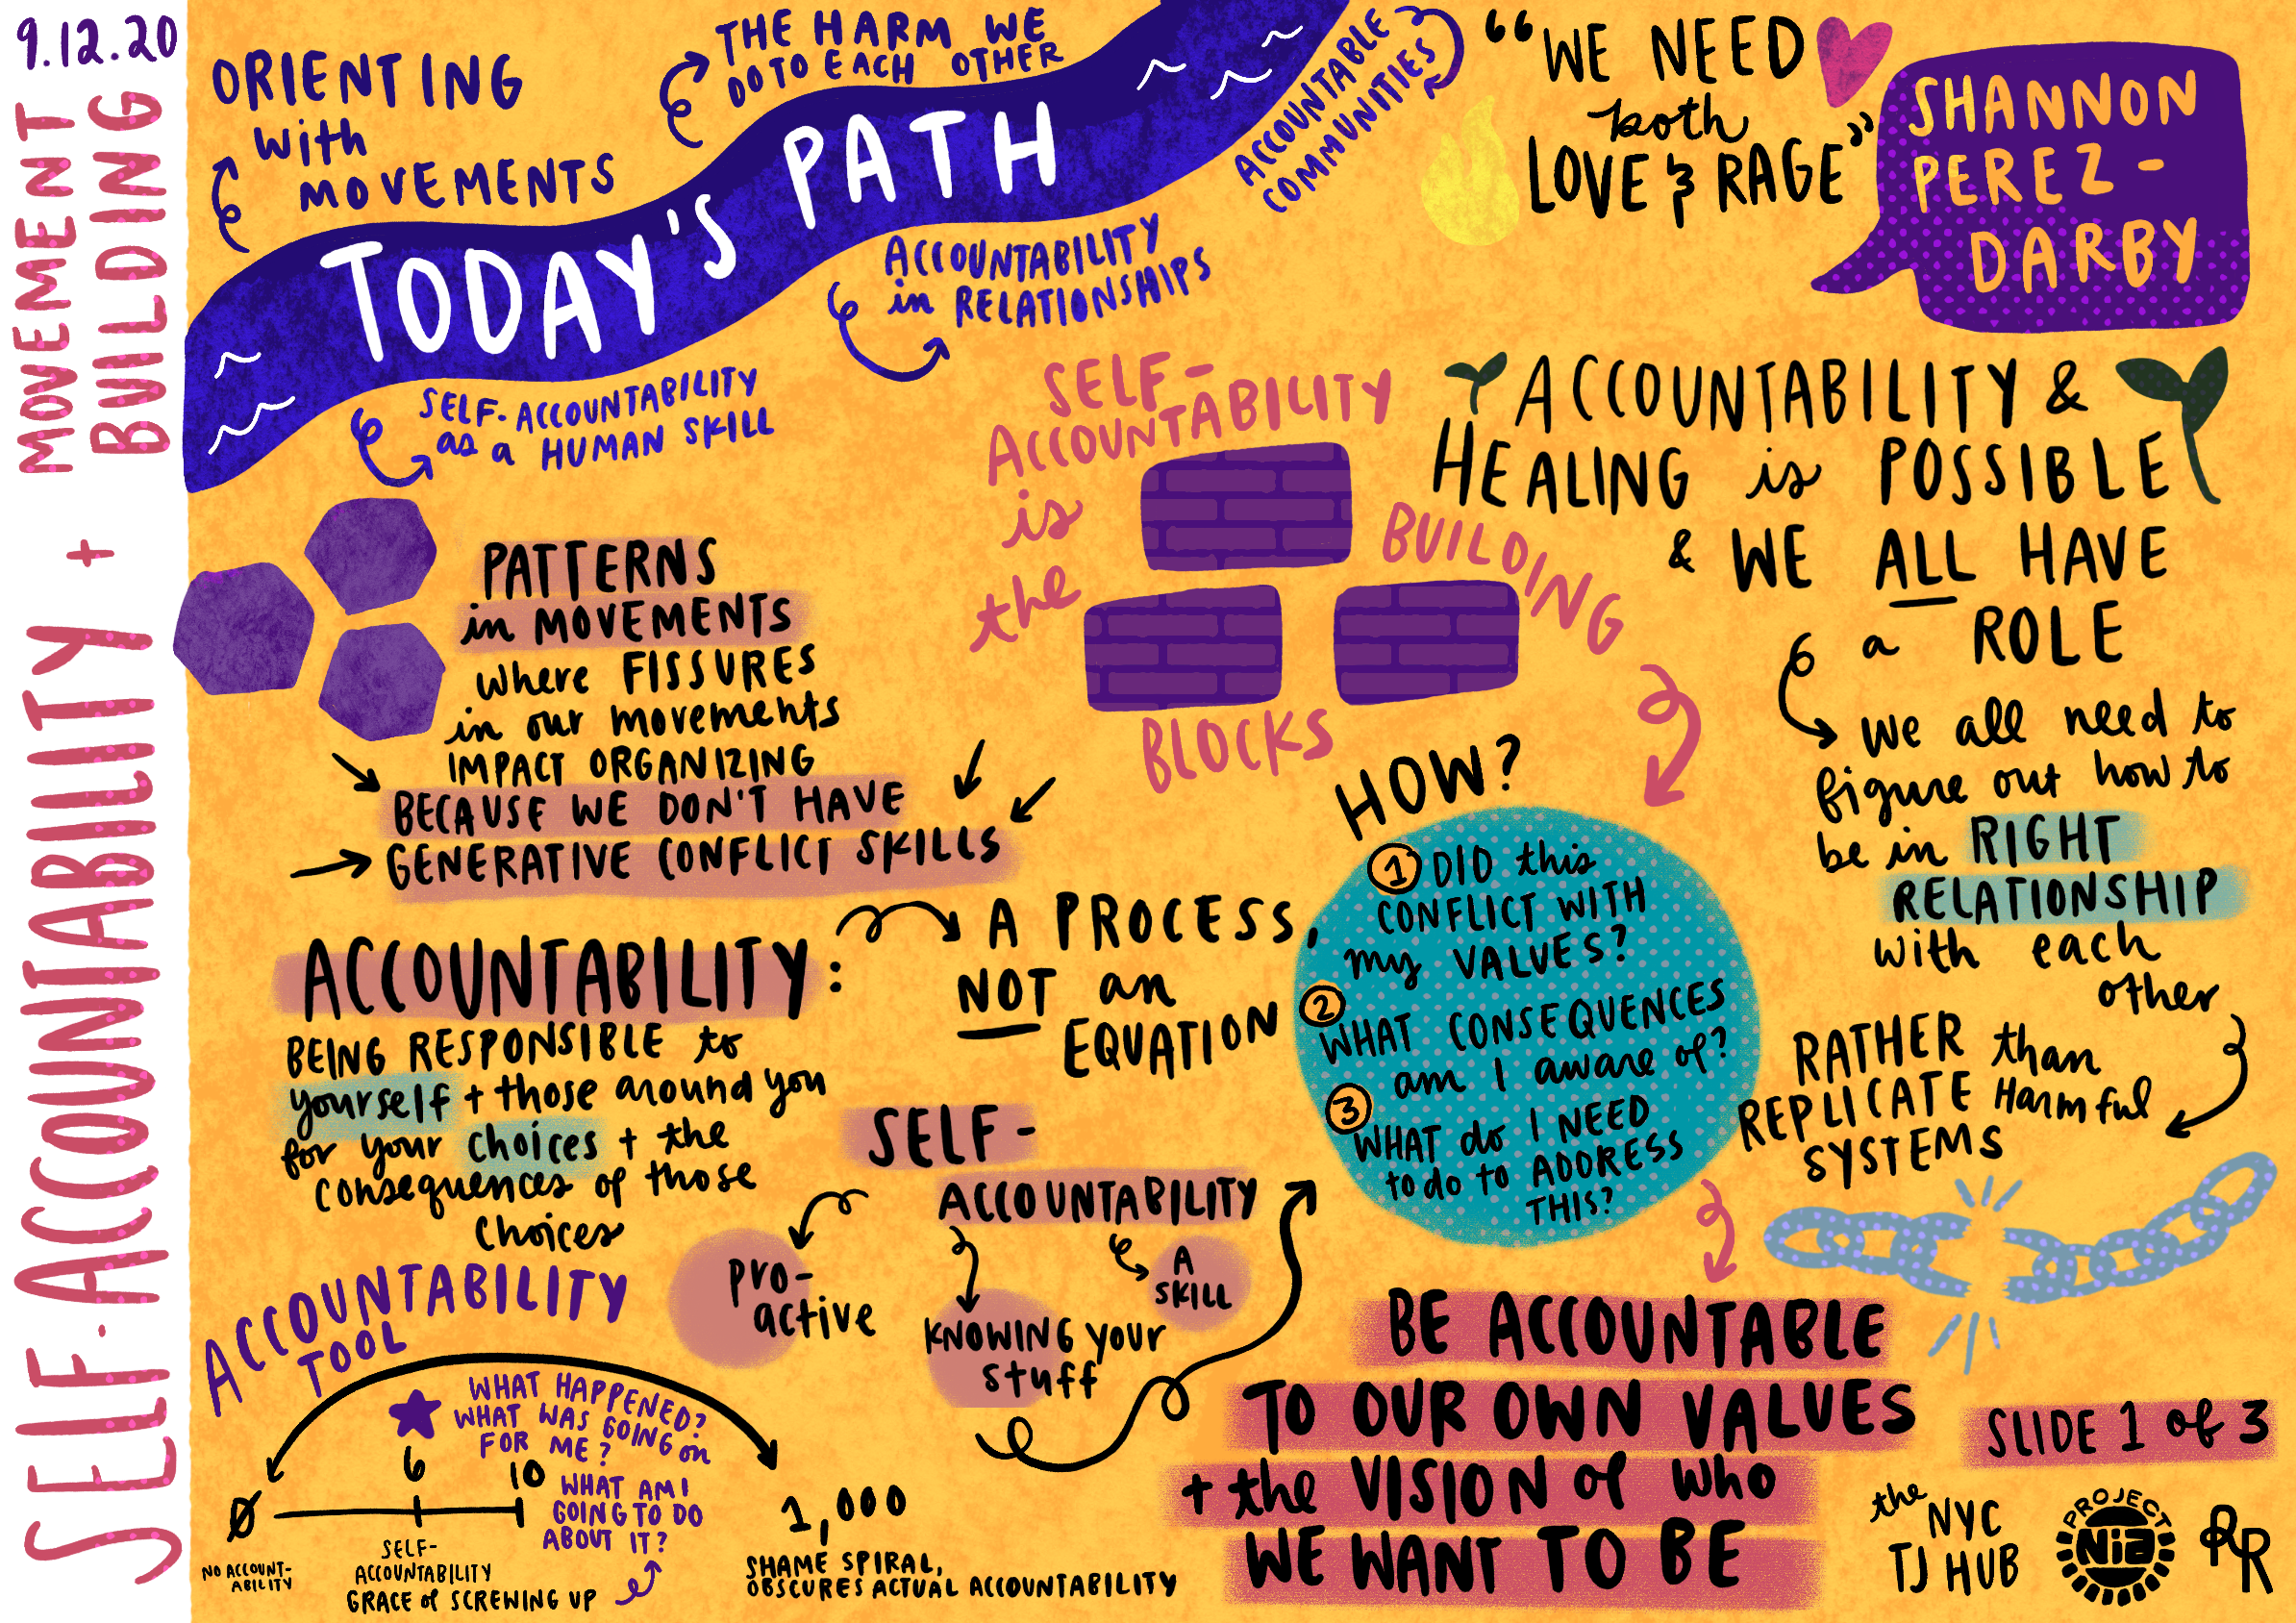 9.12.20
SELF-ACCOUNTABILITY +
MOVEMENT
BUILDING
ORIENTING
with
MOVEMENTS
THE HARM WE
DO TO EACH OTHER
ACCOUNTABLE
COMMUNITIES
TODAY'S PATH
ACCOUNTABILITY
in RELATIONSHIPS
SELF-ACCOUNTABILITY
as a HUMAN SKILL
"WE NEED
both
LOVE & RAGE"
SHANNON
PEREZ-
DARBY
SELF-
ACCOUNTABILITY
is
the
BUILDING
BLOCKS
ACCOUNTABILITY &
HEALING is POSSIBLE
& WE ALL HAVE
a ROLE
we all need to
figure out how to
be in RIGHT
RELATIONSHIP
with each
other
RATHER than
REPLICATE Harmful
SYSTEMS
PATTERNS
in MOVEMENTS
where FISSURES
in our movements
IMPACT ORGANIZING
BECAUSE WE DON'T HAVE
GENERATIVE CONFLICT SKILLS
ACCOUNTABILITY:
BEING RESPONSIBLE to
yourself + those around you
for your choices + the
consequences of those
choices
A PROCESS,
NOT an
EQUATION
SELF-
ACCOUNTABILITY
pro-
active
KNOWING your
stuff
A
SKILL
HOW?
1 DID this
CONFLICT WITH
my VALUES?
2
WHAT CONSEQUENCES
am I aware of?
3
WHAT do I NEED
to do to ADDRESS
THIS?
BE ACCOUNTABLE
TO OUR OWN VALUES
+ the VISION of who
WE WANT TO BE
ACCOUNTABILITY
TOOL
WHAT HAPPENED?
WHAT WAS GOING on
FOR ME?
0
6
10
WHAT AM I
GOING TO DO
ABOUT IT?
1,000
NO ACCOUNT-
ABILITY
SELF-
ACCOUNTABILITY
GRACE of SCREWING UP
SHAME SPIRAL,
OBSCURES ACTUAL ACCOUNTABILITY
SLIDE 1 of 3
the NYC
TJ HUB
PROJECT
NiA
RR